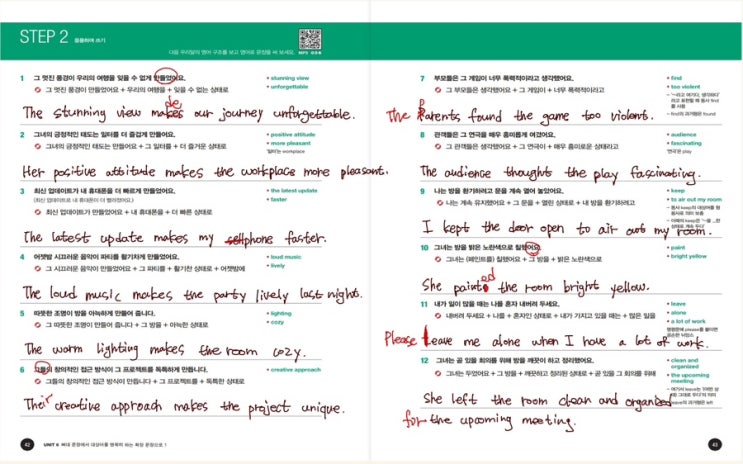 STEP 2 응용하여 쓰기
다음 우리말의 영어 구조를 보고 영어로 문장을 써 보세요.
1 그 멋진 풍경이 우리의 여행을 잊을 수 없게 만들었어요.
그 멋진 풍경이 만들었어요 + 우리의 여행을 + 잊을 수 없는 상태로
• stunning view
• unforgettable
The stunning view makes our journey unforgettable.
de
2 그녀의 긍정적인 태도는 일터를 더 즐겁게 만들어요.
그녀의 긍정적인 태도는 만들어요 + 일터를 + 더 즐거운 상태로
• positive attitude
• more pleasant
'일터'는 workplace
Her positive attitude makes the workplace more pleasant.
3 최신 업데이트가 내 휴대폰을 더 빠르게 만들었어요.
(최신 업데이트로 내 휴대폰이 더 빨라졌어요.)
최신 업데이트가 만들었어요 + 내 휴대폰을 + 더 빠른 상태로
• the latest update
• faster
The latest update makes my phone faster.
4 어젯밤 시끄러운 음악이 파티를 활기차게 만들었어요.
그 시끄러운 음악이 만들었어요 + 그 파티를 + 활기찬 상태로 + 어젯밤에
• loud music
• lively
The loud music makes the party lively last night.
5 따뜻한 조명이 방을 아늑하게 만들어 줍니다.
그 따뜻한 조명이 만들어 줍니다 + 그 방을 + 아늑한 상태로
• lighting
• cozy
The warm lighting makes the room cozy.
6 그들의 창의적인 접근 방식이 그 프로젝트를 독특하게 만듭니다.
그들의 창의적인 접근 방식이 만듭니다 + 그 프로젝트를 + 독특한 상태로
• creative approach
Their creative approach makes the project unique.
42 UNIT 6 뼈대 문장에서 대상어를 명확히 하는 확장 문장으로 1
7 부모들은 그 게임이 너무 폭력적이라고 생각했어요.
그 부모들은 생각했어요 + 그 게임이 + 너무 폭력적인 상태라고
• find
• too violent
The Parents found the game too violent.
8 관객들은 그 연극을 매우 흥미롭게 여겼어요.
그 관객들은 생각했어요 + 그 연극이 + 매우 흥미로운 상태라고
• audience
• fascinating
'연극'은 play
The audience thoughts the play fascinating.
9 나는 방을 환기하려고 문을 계속 열어 놓았어요.
나는 계속 유지했어요 + 그 문을 + 열린 상태로 + 내 방을 환기하려고
• keep
• to air out my room
I kept the door open to air out my room.
10 그녀는 방을 밝은 노란색으로 칠했어요.
그녀는 (페인트를) 칠했어요 + 그 방을 + 밝은 노란색으로
• paint
• bright yellow
She painted the room bright yellow.
11 내가 일이 많을 때는 나를 혼자 내버려 두세요.
내버려 두세요 + 나를 + 혼자인 상태로 + 내가 가지고 있을 때는 + 많은 일을
• leave
• alone
• a lot of work
Please Leave me alone when I have a lot of work.
12 그녀는 곧 있을 회의를 위해 방을 깨끗이 하고 정리했어요.
그녀는 두었어요 + 그 방을 + 깨끗하고 정리된 상태로 + 곧 있을 그 회의를 위해
• clean and organized
• the upcoming meeting
She left the room clean and organized
for the upcoming meeting.
43